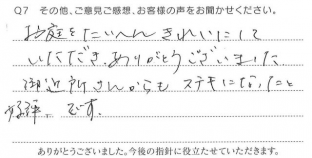 Q7 その他、ご意見ご感想、お客様の声をお聞かせください。
お庭をたいへんきれいにして
いただきありがとうございました
御近所さんからも ステキになったと
好評 です.
ありがとうございました。今後の指針に役立たせていただきます。